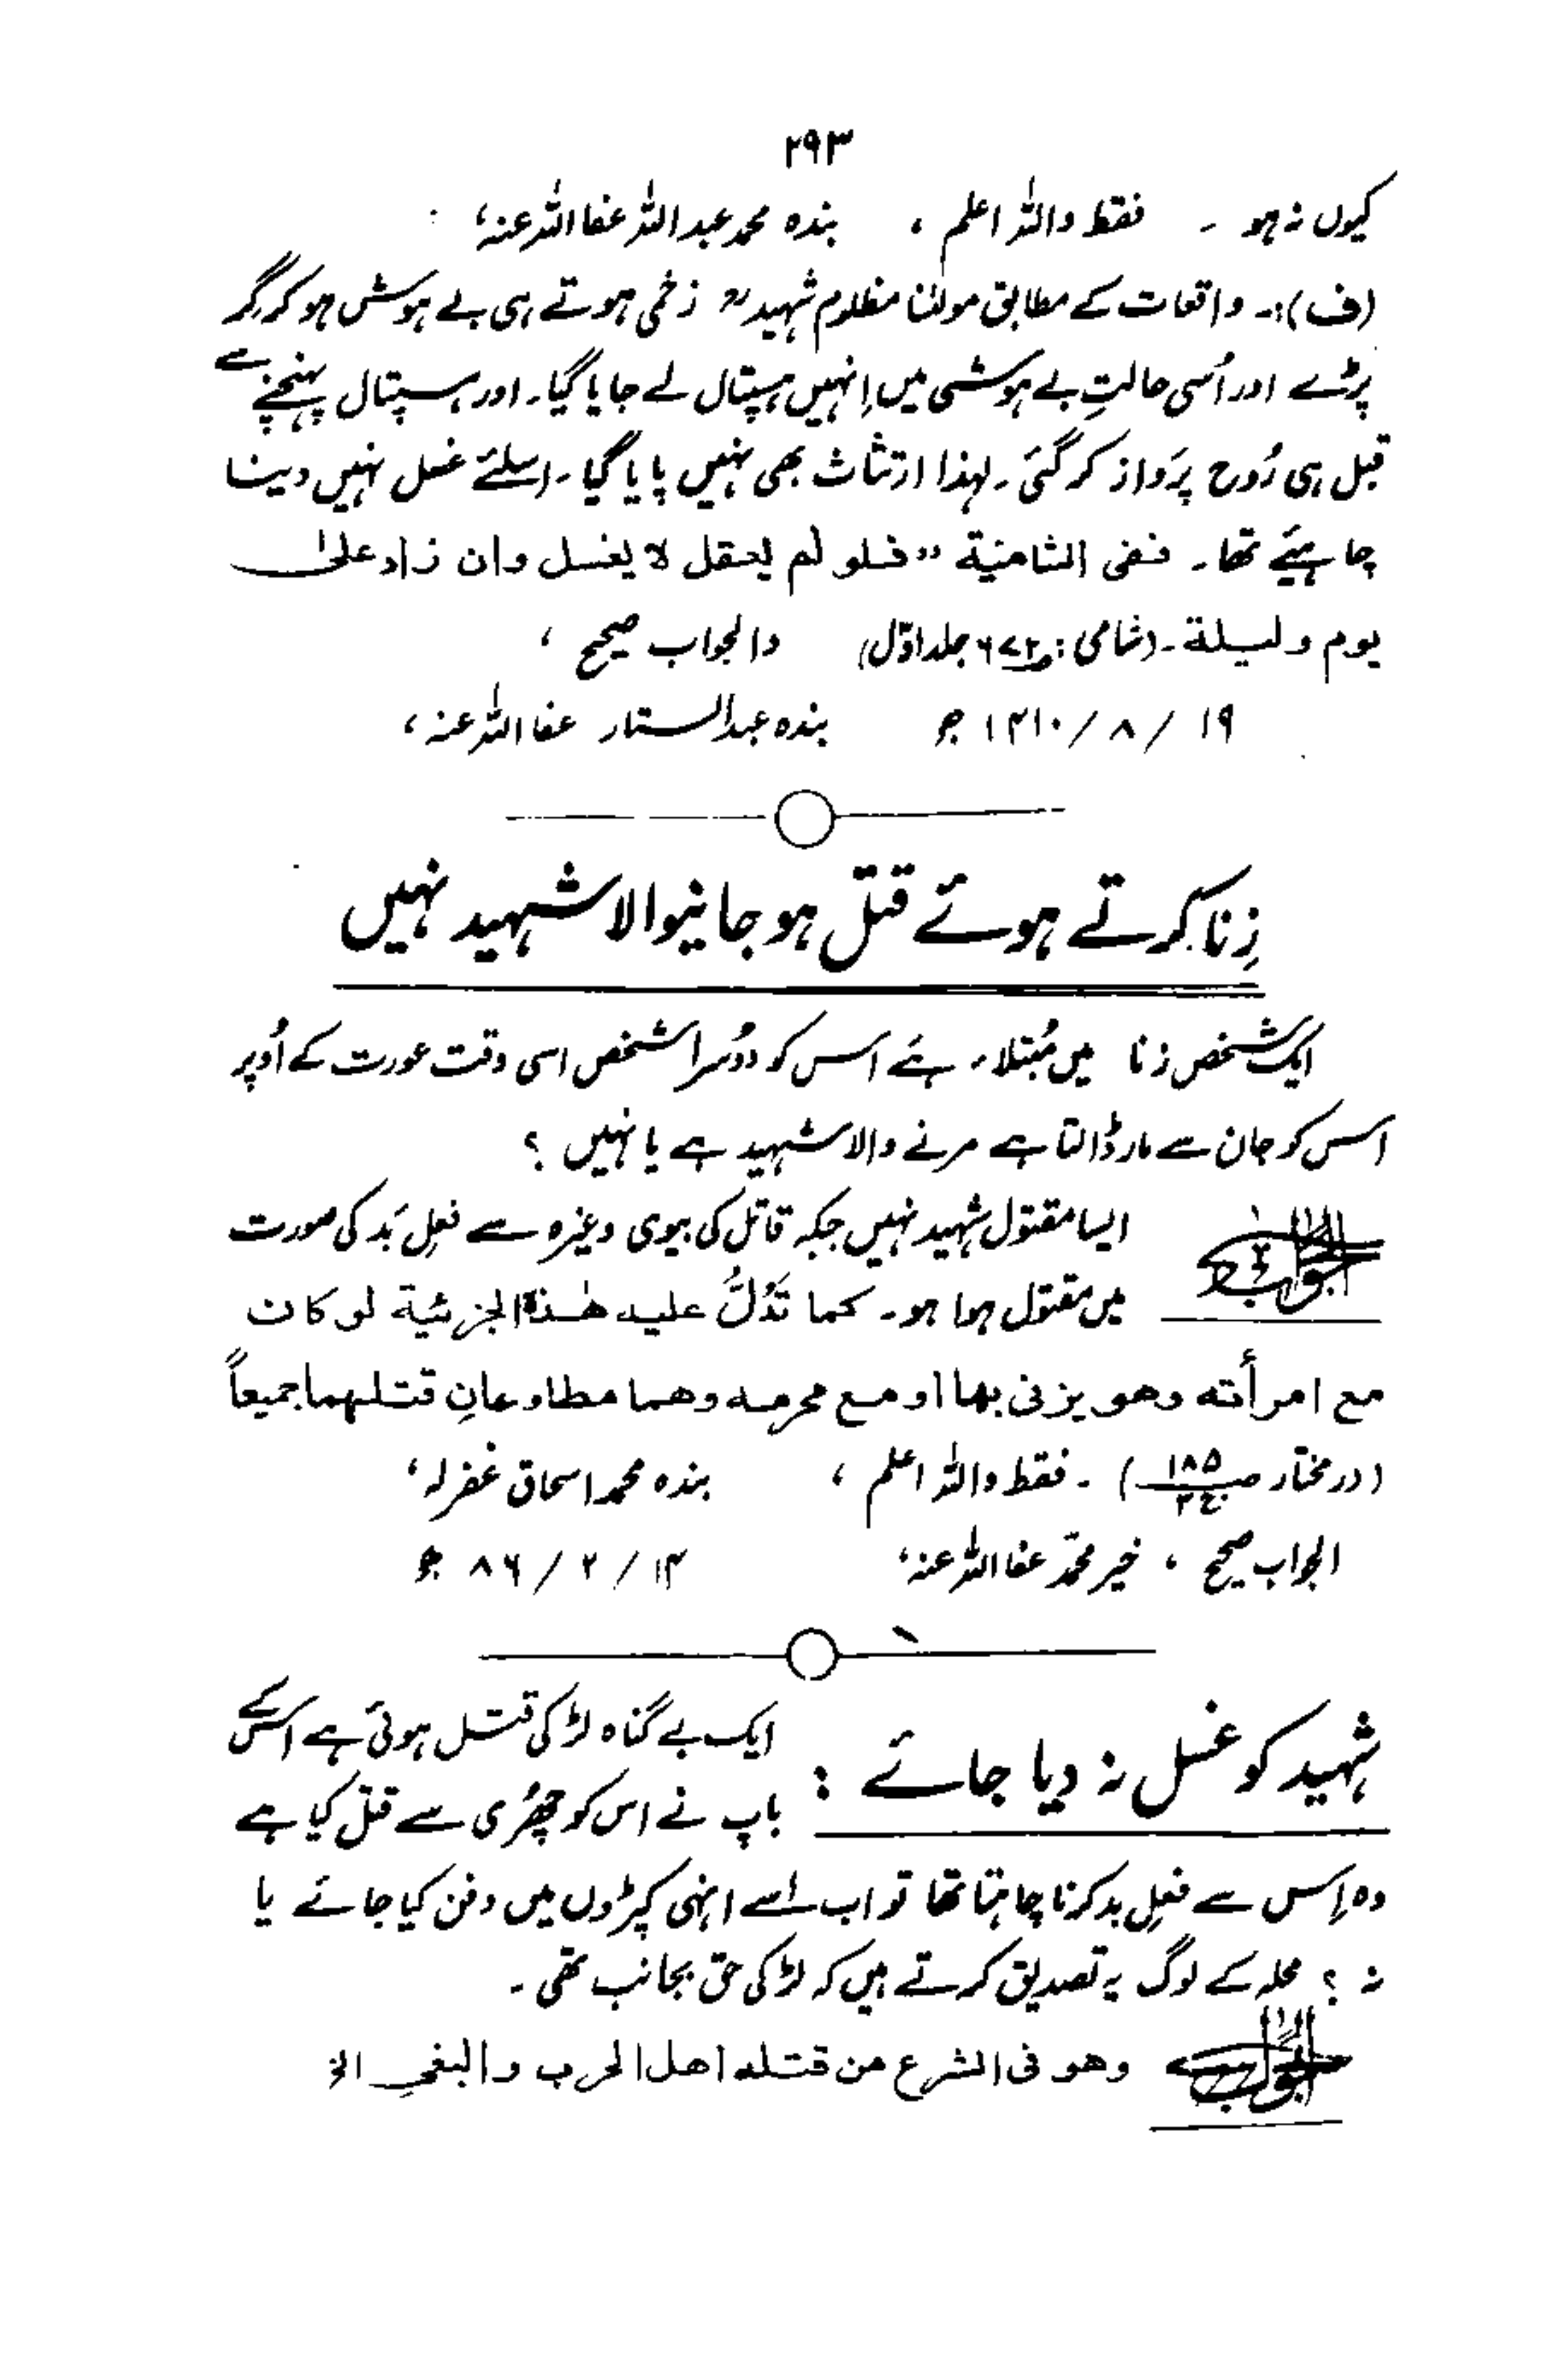 ۲۹۳
کیوں نہ ہو ۔ فقط واللہ اعلم ، بندہ محمد عبداللہ عفا اللہ عنہ،
(ف):۔ واقعات کے مطابق مولٰنا مظلوم شہیدؒ زخمی ہوتے ہی بے ہوش ہو کر گر
پڑے اور اُسی حالتِ بے ہوشی میں اِنہیں ہسپتال لے جایا گیا۔ اور ہسپتال پہنچنے سے
قبل ہی رُوح پَرواز کر گئی۔ لہذا ارتثاث بھی نہیں پایا گیا۔ اسلئے غسل نہیں دینا
چاہیئے تھا۔ ففی الشامیّة ”فلو لم یعقل لا یغسل وان زاد علیٰ
یوم ولیلة۔ (شامی: ص۶۷۲ جلد اوّل) والجواب صحیح ،
۱۹ / ۸ / ۱۴۱۰ ھ بندہ عبدالستار عفا اللہ عنہ،
زِنا کرتے ہوئے قتل ہو جانیوالا شہید نہیں
ایک شخص زنا میں مُبتلاء ہے اس کو دوُسرا شخص اسی وقت عورت کے اُوپر
اس کو جان سے مار ڈالتا ہے مرنے والا شہید ہے یا نہیں ؟
الجواب ایسا مقتول شہید نہیں جبکہ قاتل کی بیوی وغیرہ سے فعلِ بَد کی صورت
میں مقتول ہوا ہو۔ کما تَدُلُّ علیہ ھٰذہ الجزئیة لو کان
مع امرأته وهو یزنی بها او مع محرمه وهما مطاوعانِ قتلهما جمیعاً
(در مختار ص۱۸۵ ج۳) ۔ فقط واللہ اعلم ، بندہ محمد اسحاق غفرلہ،
الجواب صحیح ، خیر محمّد عفا اللہ عنہ، ۱۴ / ۲ / ۸۶ ھ
شہید کو غسل نہ دیا جائے : ایک بے گناہ لڑکی قتل ہوئی ہے اس کے
باپ نے اس کو چھُری سے قتل کیا ہے
وہ اِس سے فعلِ بد کرنا چاہتا تھا تو اب اسے انہی کپڑوں میں دفن کیا جائے یا
نہ ؟ محلہ کے لوگ یہ تصدیق کرتے ہیں کہ لڑکی حق بجانب تھی ۔
الجواب وهو فی الشرع من قتله اهل الحرب والبغی الخ